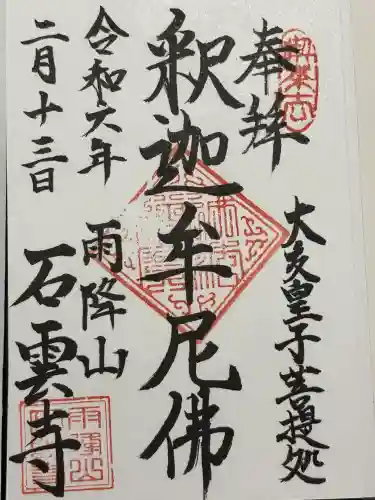 奉拜
大友皇子菩提処
釈迦牟尼佛
雨降山
石雲寺
令和六年
二月十三日
雨降山